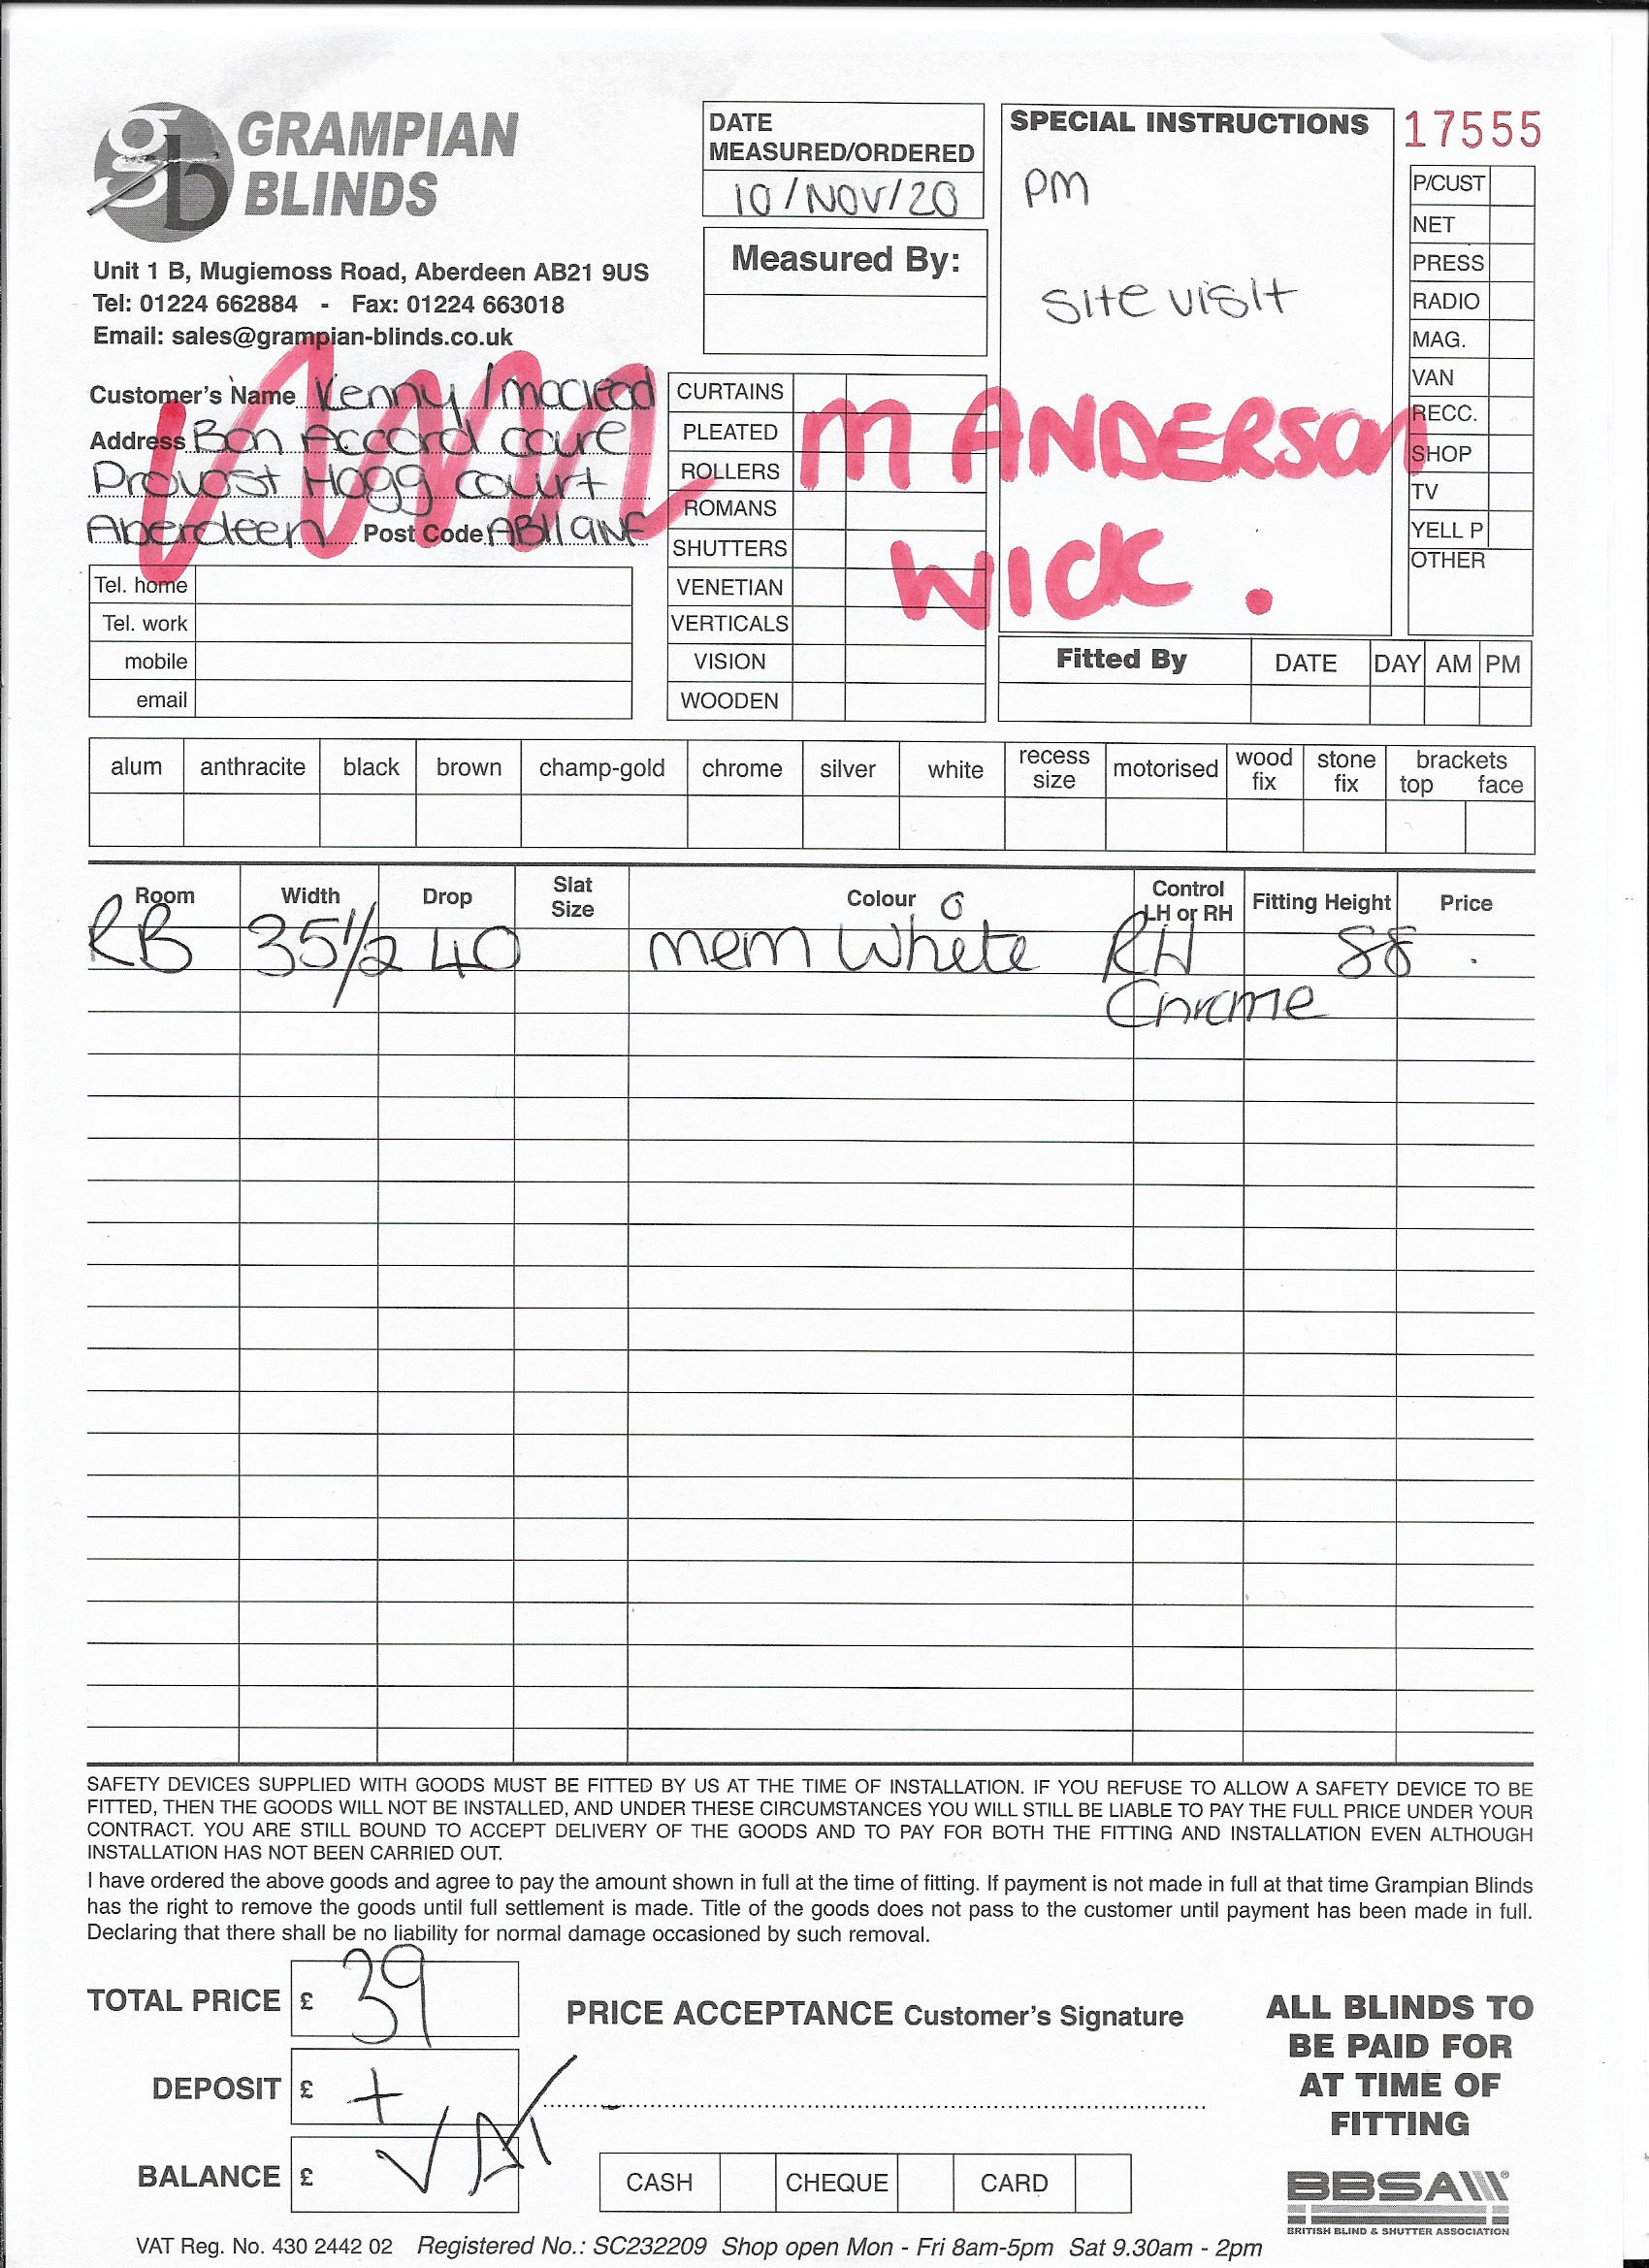 gb GRAMPIAN BLINDS
Unit 1 B, Mugiemoss Road, Aberdeen AB21 9US
Tel: 01224 662884 - Fax: 01224 663018
Email: sales@grampian-blinds.co.uk
DATE MEASURED/ORDERED
10/NOV/20
Measured By:
SPECIAL INSTRUCTIONS
PM
Site visit
17555
P/CUST
NET
PRESS
RADIO
MAG.
VAN
RECC.
SHOP
TV
YELL P
OTHER
Customer's Name Kenny / Macleod
Address Bon Accord Caure
Provost Hogg Court
Aberdeen Post Code AB11 9NF
M ANDERSON
WICK.
Tel. home
Tel. work
mobile
email
CURTAINS
PLEATED
ROLLERS
ROMANS
SHUTTERS
VENETIAN
VERTICALS
VISION
WOODEN
Fitted By DATE DAY AM PM
alum anthracite black brown champ-gold chrome silver white recess size motorised wood fix stone fix brackets top face
Room Width Drop Slat Size Colour Control LH or RH Fitting Height Price
RB 35 1/2 40 mem White RH 88
Chrome
SAFETY DEVICES SUPPLIED WITH GOODS MUST BE FITTED BY US AT THE TIME OF INSTALLATION. IF YOU REFUSE TO ALLOW A SAFETY DEVICE TO BE
FITTED, THEN THE GOODS WILL NOT BE INSTALLED, AND UNDER THESE CIRCUMSTANCES YOU WILL STILL BE LIABLE TO PAY THE FULL PRICE UNDER YOUR
CONTRACT. YOU ARE STILL BOUND TO ACCEPT DELIVERY OF THE GOODS AND TO PAY FOR BOTH THE FITTING AND INSTALLATION EVEN ALTHOUGH
INSTALLATION HAS NOT BEEN CARRIED OUT.
I have ordered the above goods and agree to pay the amount shown in full at the time of fitting. If payment is not made in full at that time Grampian Blinds
has the right to remove the goods until full settlement is made. Title of the goods does not pass to the customer until payment has been made in full.
Declaring that there shall be no liability for normal damage occasioned by such removal.
TOTAL PRICE £ 39
DEPOSIT £ +
BALANCE £ VAT
PRICE ACCEPTANCE Customer's Signature
CASH CHEQUE CARD
ALL BLINDS TO
BE PAID FOR
AT TIME OF
FITTING
BBSA
BRITISH BLIND & SHUTTER ASSOCIATION
VAT Reg. No. 430 2442 02 Registered No.: SC232209 Shop open Mon - Fri 8am-5pm Sat 9.30am - 2pm